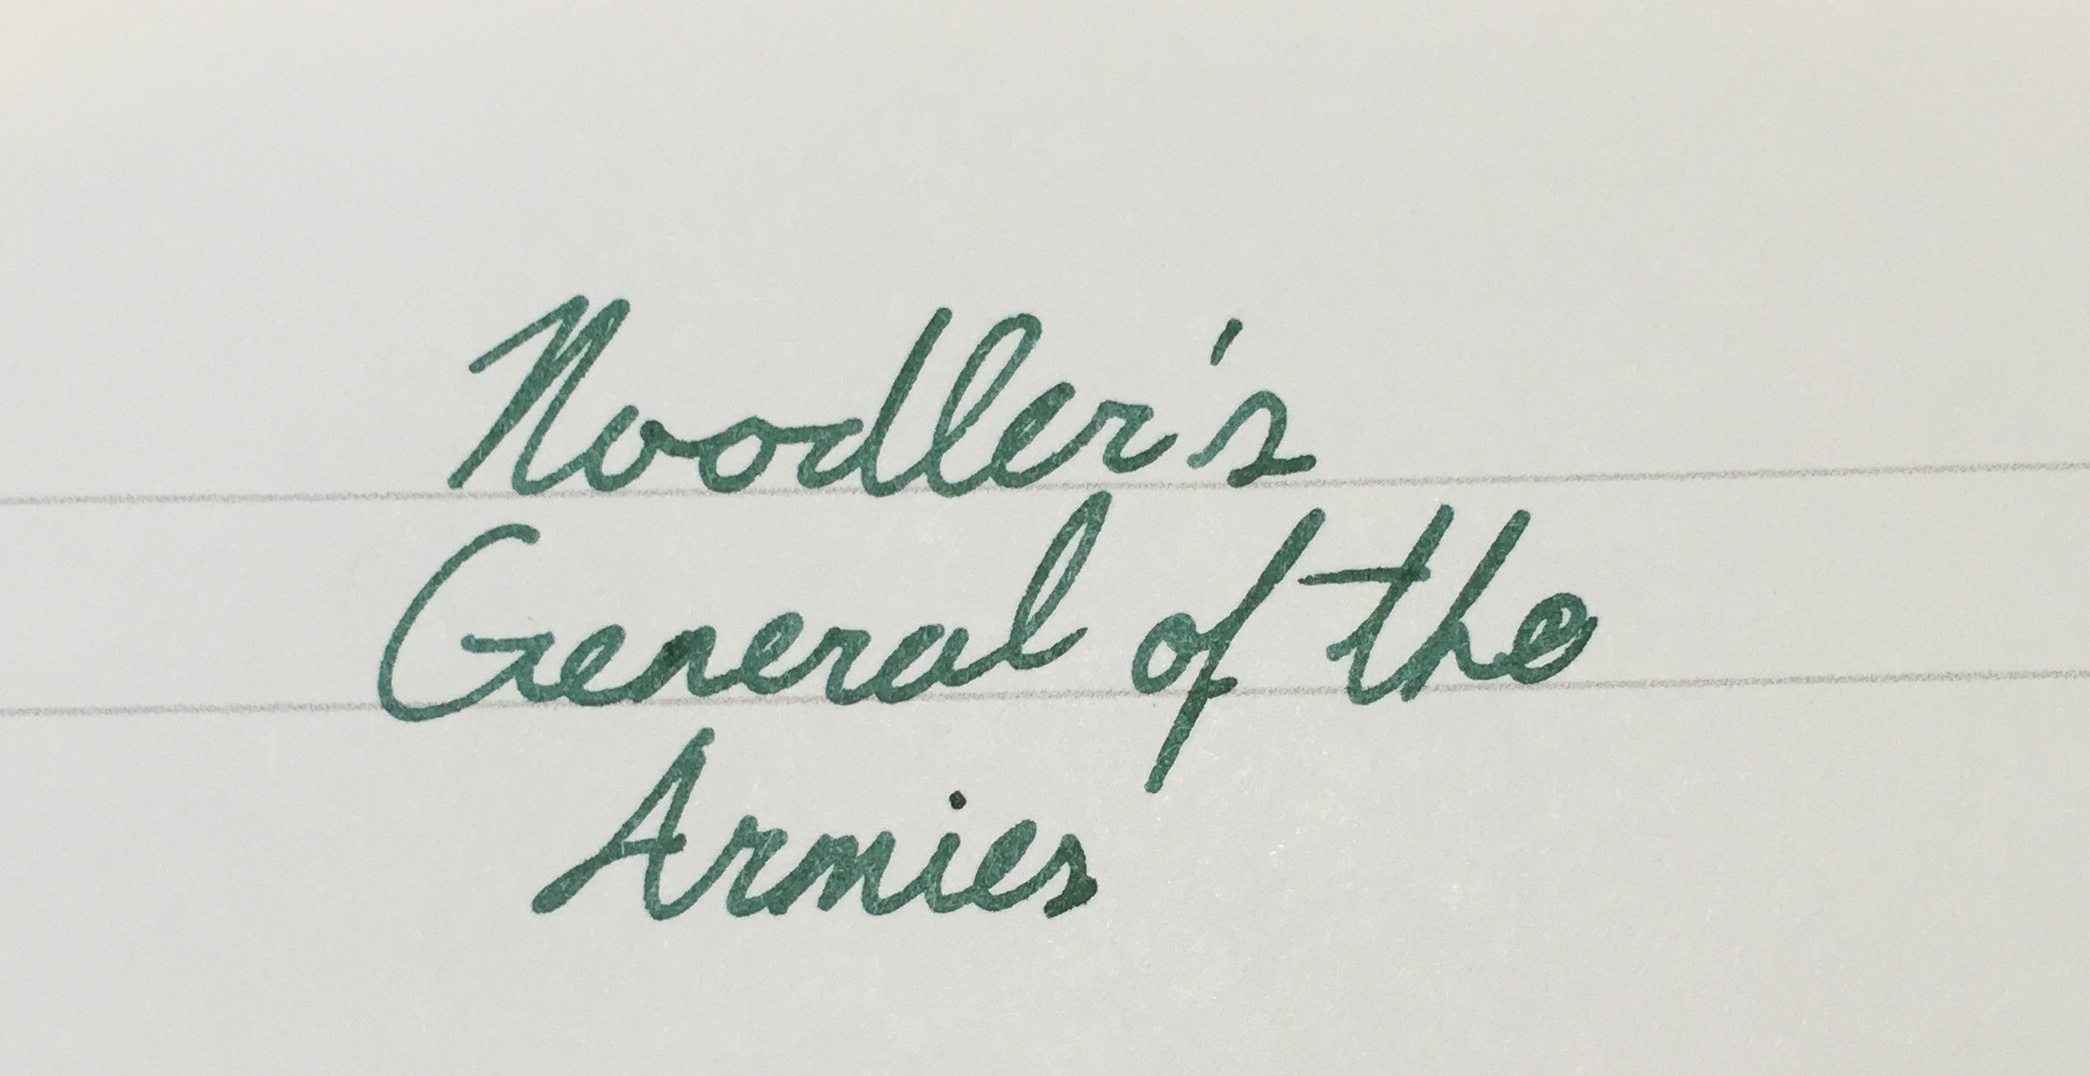 Noodler's
General of the
Armies